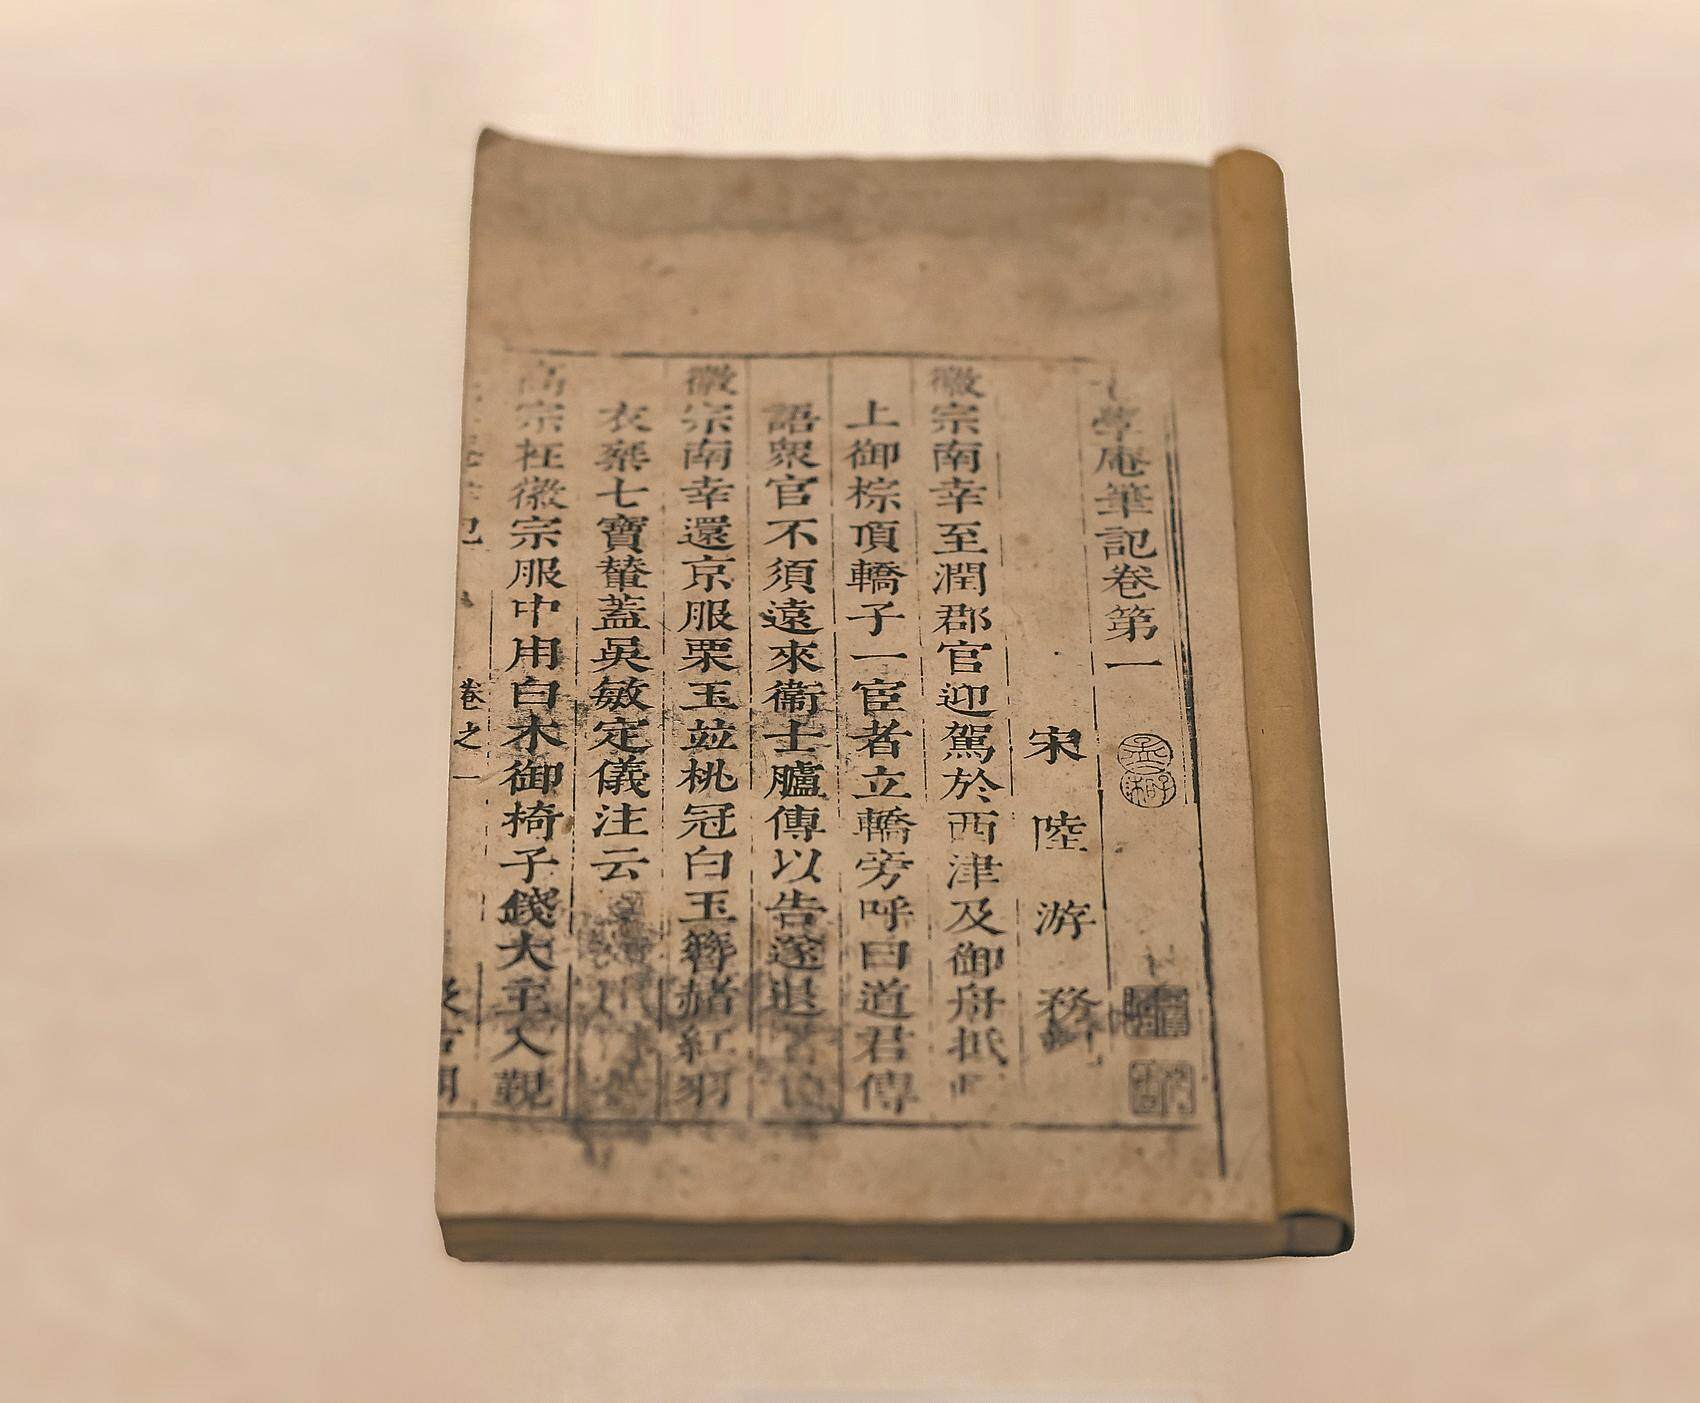 學庵筆記卷第一
宋 陸 游 務
徽宗南幸至潤郡官迎駕於西津及御舟抵
上御棕頂轎子一宦者立轎旁呼曰道君傳
語衆官不須遠來衞士臚傳以告遂退
徽宗南幸還京服栗玉並桃冠白玉簪赭紅羽
衣乗七寶輦蓋吳敏定儀注云
高宗在徽宗服中用白木御椅子錢大主入覲
卷之一